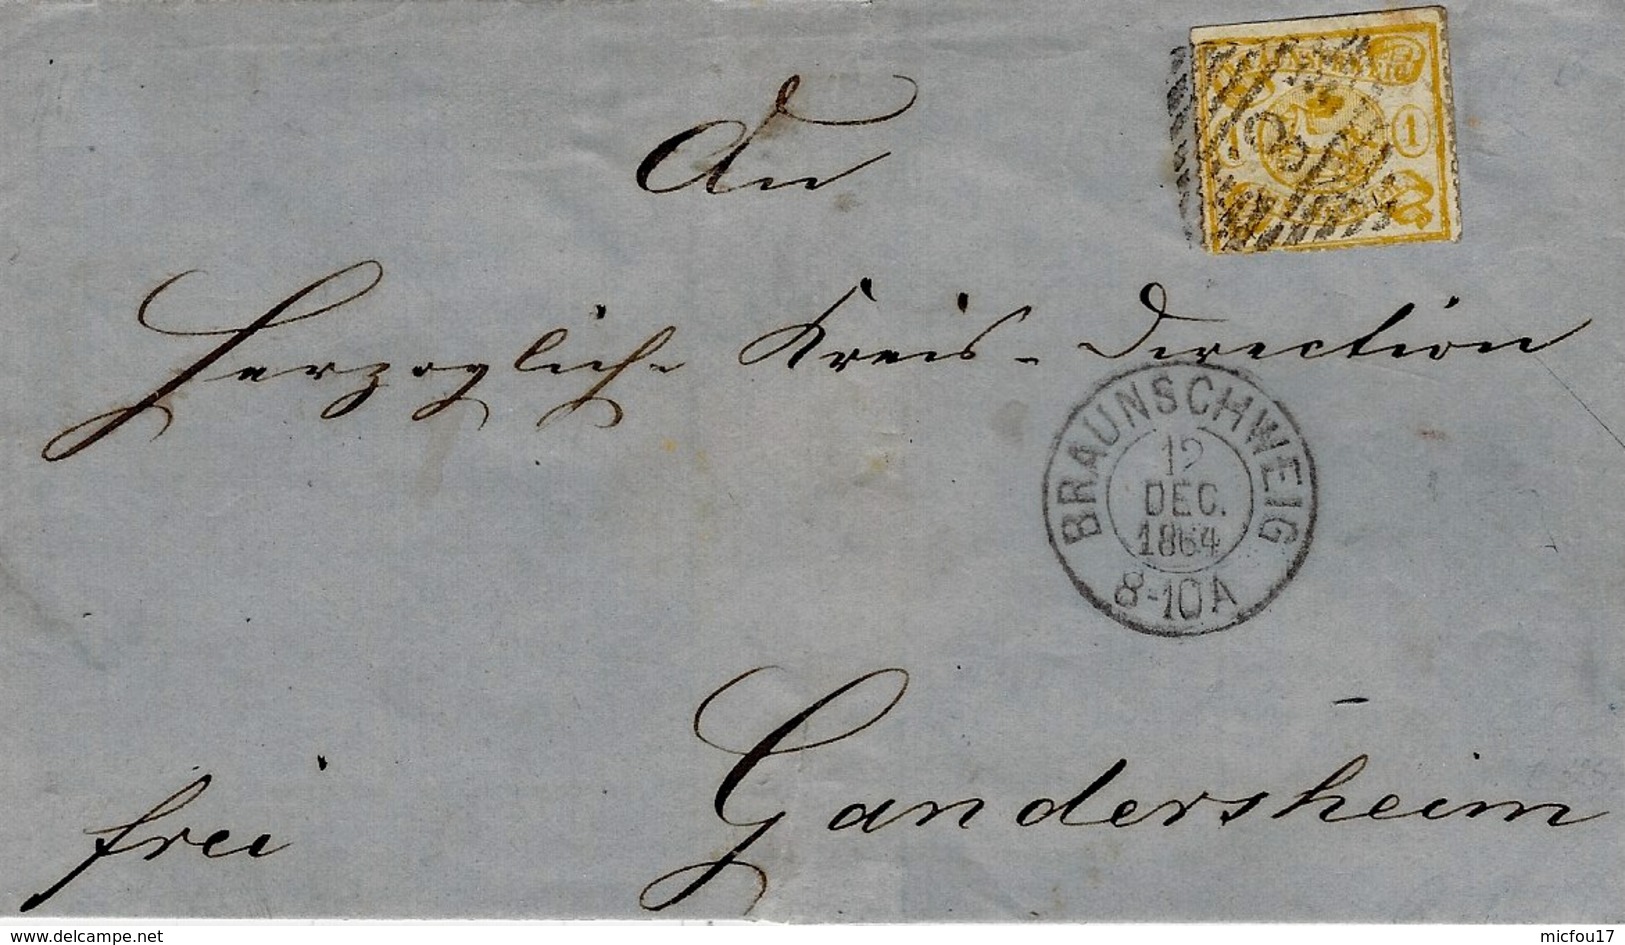 An
1
8
Herzogliche Kreis-Direction
BRAUNSCHWEIG
12
DEC.
1864
8-10A
frei
Gandersheim
www.delcampe.net
micfou17